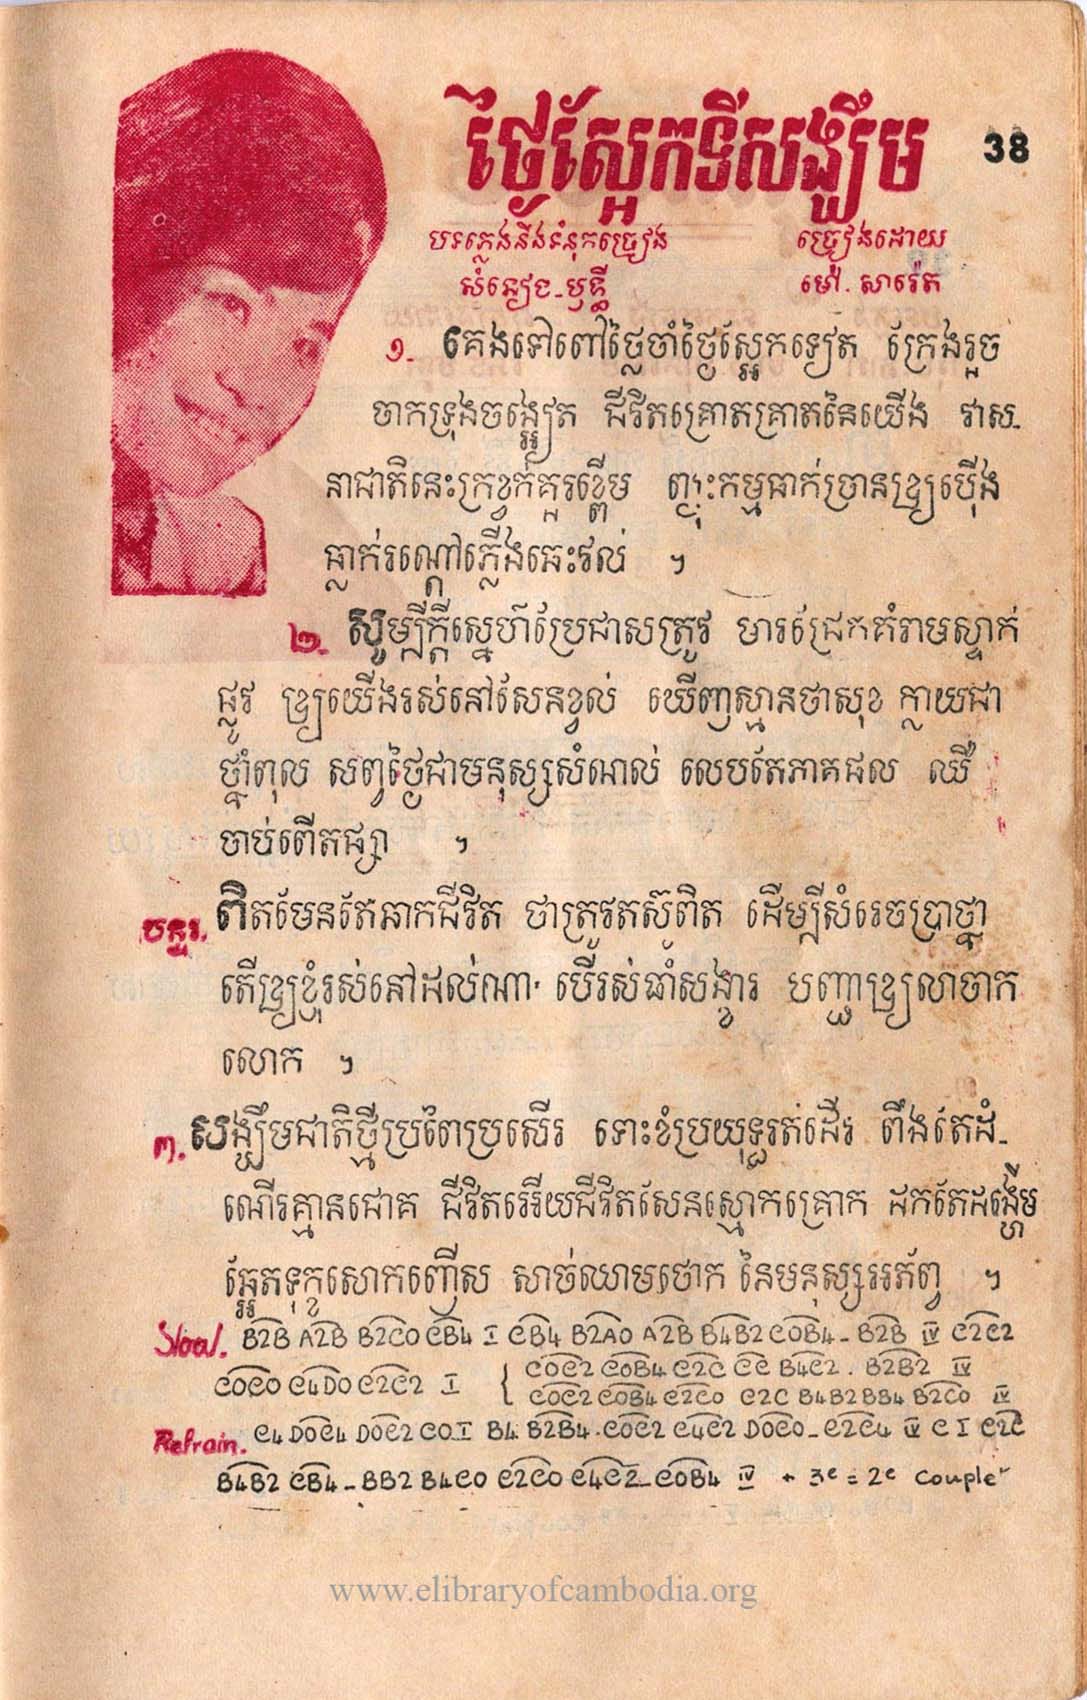 ថ្ងៃស្អែកទីសង្ឃឹម
38
បទភ្លេងនឹងទំនុកច្រៀង ច្រៀងដោយ
សំនៀង-ឫទ្ធី ម៉ៅ. សារ៉េត
១. គេងទៅពៅថ្លៃចាំថ្ងៃស្អែកទៀត ក្រែងរួច
ចាកទ្រុងចង្អៀត ជីវិតគ្រោតគ្រាតនៃយើង វាស-
នាជាតិនេះក្រខ្វក់គួរខ្ពើម ព្យុះកម្មធាក់ច្រានឲ្យប៉ើង
ធ្លាក់រណ្តៅភ្លើងឆេះវល់ ។
២. សូម្បីក្តីស្នេហ៍ប្រែជាសត្រូវ មារជ្រែកគំរាមស្ទាក់
ផ្លូវ ឲ្យយើងរស់នៅសែនខ្វល់ ឃើញស្មានថាសុខ ក្លាយជា
ថ្នាំពុល សព្វថ្ងៃជាមនុស្សសំណល់ លេបតែភាគផល ឈឺ
ចាប់ពើតផ្សា ។
បន្ទរ. ពិតមែនតែឆាកជីវិត ថាត្រូវតស៊ូពិត ដើម្បីសំរេចប្រាថ្នា
តើឲ្យខ្ញុំរស់នៅដល់ណា បើរស់ធាំសង្ខារ បញ្ជាឲ្យលាចាក
លោក ។
៣. សង្ឃឹមជាតិថ្មីប្រពៃប្រសើរ ទោះខំប្រយុទ្ធរត់ដើរ ពឹងតែដំ-
ណើរគ្មានជោគ ជីវិតអើយជីវិតសែនស្មោកគ្រោក ដកតែដង្ហើម
ឆ្អែតទុក្ខសោកញ៉ើស សាច់ឈាមថោក នៃមនុស្សអភ័ព្វ ។
Slow. B2B A2B B2C0 CB4 I CB4 B2A0 A2B B4B2 C0B4 - B2B IV C2C2
C0C0 C4D0 C2C2 I { C0C2 C0B4 C2C CC B4C2 . B2B2 IV
C0C2 C0B4 C2C0 C2C B4B2 BB4 B2C0 IV
Refrain. C4 D0C4 D0C2 C0 I B4 B2B4 . C0C2 C4C2 D0C0 - C2C4 IV C I C2C
B4B2 CB4 - BB2 B4C0 C2C0 C4C2 - C0B4 IV + 3e = 2e couplet
www.elibraryofcambodia.org